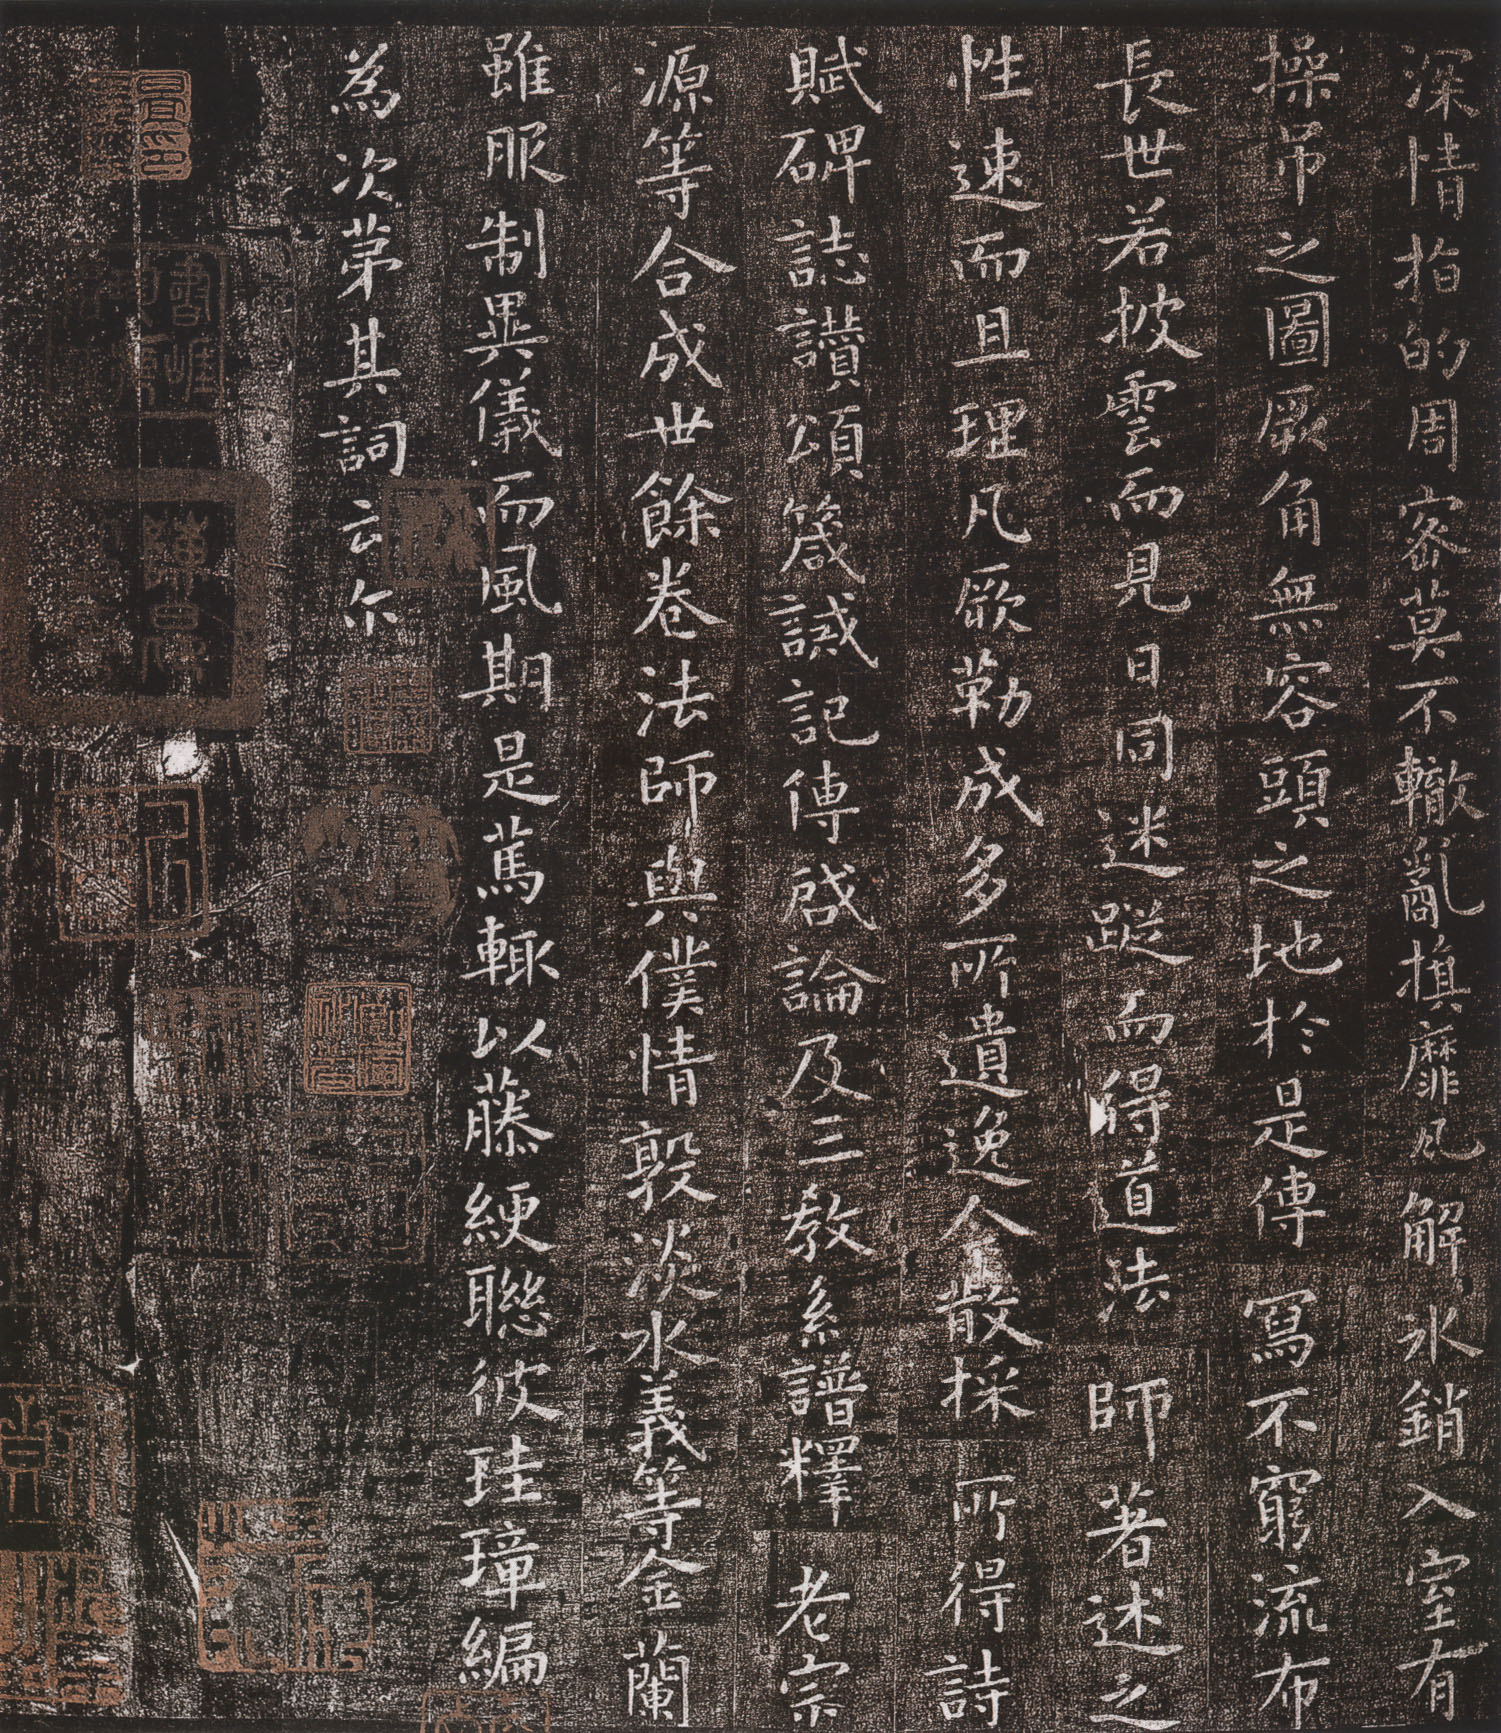 深情指的周密莫不轍亂旗靡凡解氷銷入室有
操帛之圖厥角無容頭之地於是傳寫不窮流布
長世若披雲而見日同迷蹤而得道法師著述之
性速而且理凡厥勒成多所遺逸人散採所得詩
賦碑誌讃頌箴誡記傳啓論及三教系譜釋老宗
源等合成世餘卷法師與僕情敦淡水義等金蘭
雖服制異儀而風期是篤輙以藤綆聯彼珪璋編
為次第其詞云尓